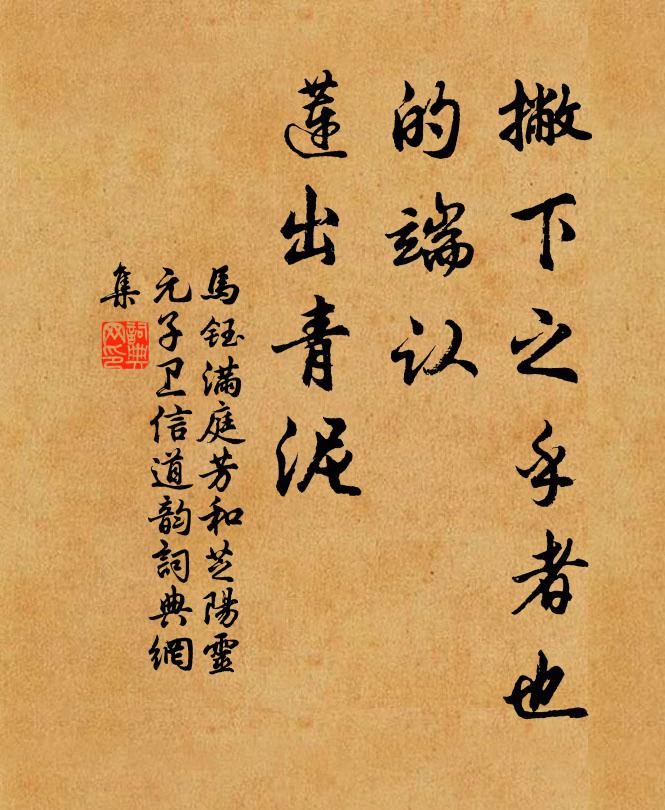 撇下之乎者也
的端认
莲出青泥
馬鈺满庭芳和芝陽靈
元子卫信道韵詞典網
集
詞典
网印